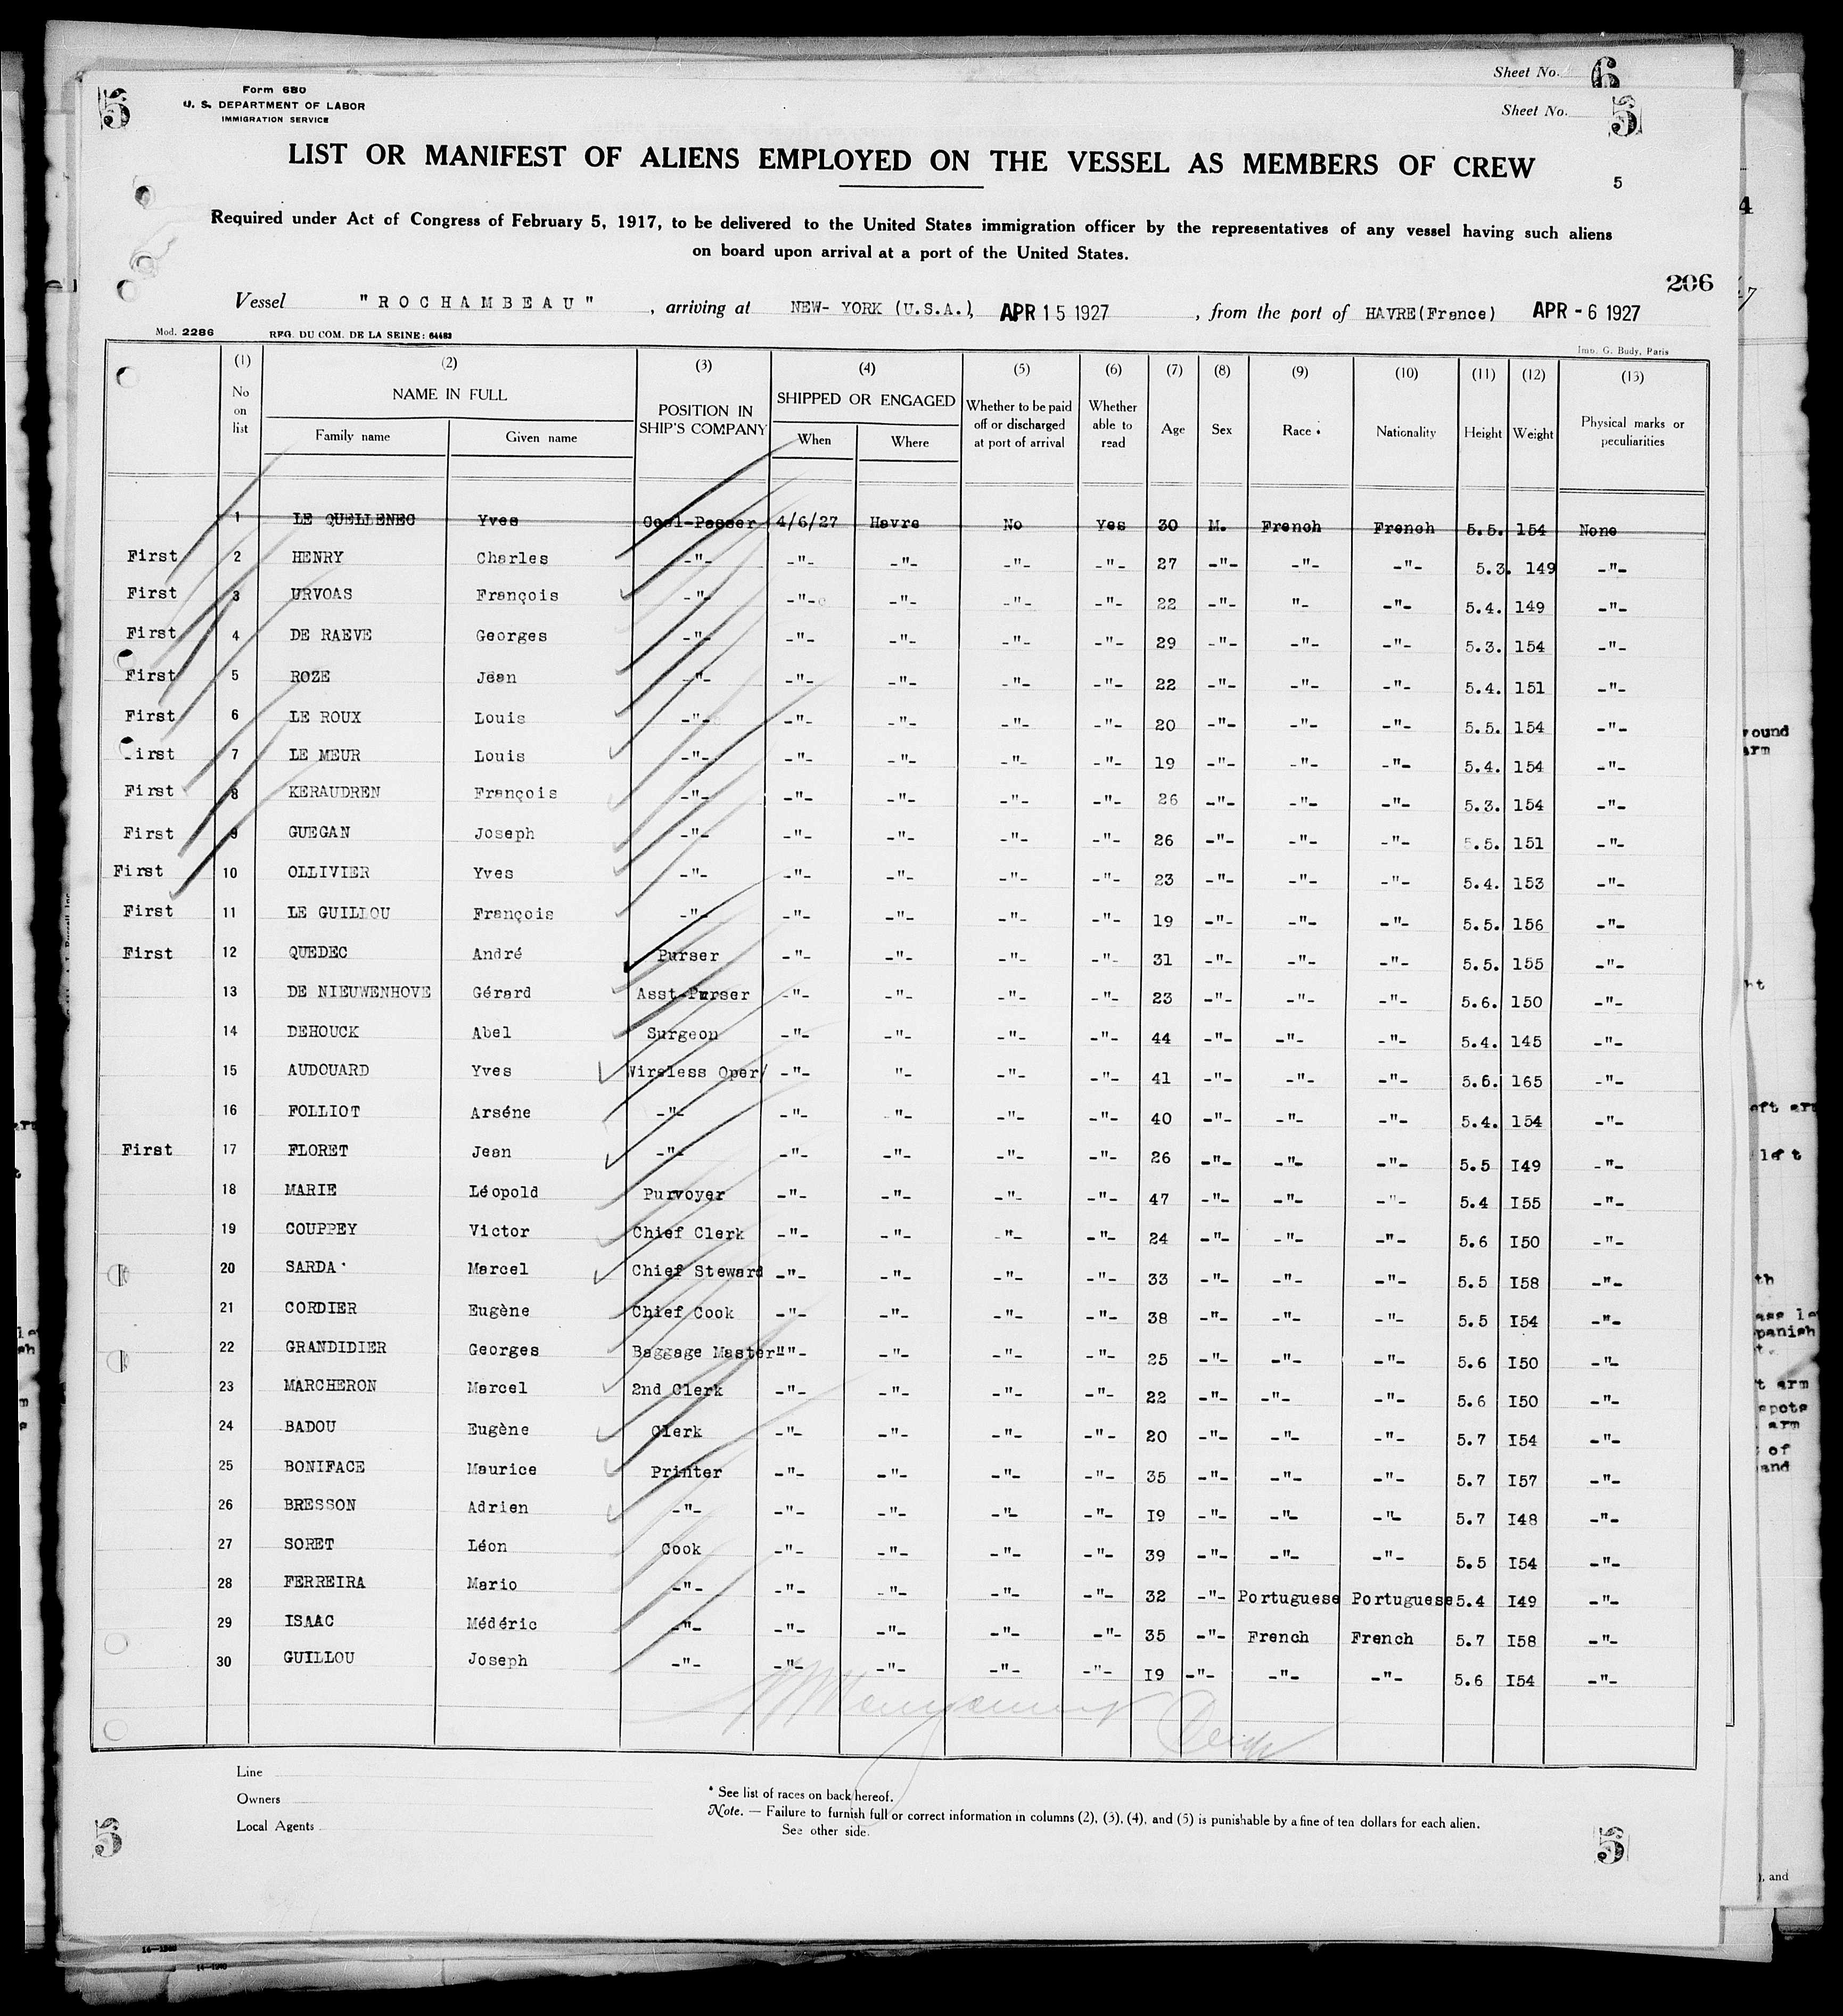 Sheet No. 6
5 Form 680 Sheet No. 5
U. S. DEPARTMENT OF LABOR
IMMIGRATION SERVICE
LIST OR MANIFEST OF ALIENS EMPLOYED ON THE VESSEL AS MEMBERS OF CREW
5
Required under Act of Congress of February 5, 1917, to be delivered to the United States immigration officer by the representatives of any vessel having such aliens
on board upon arrival at a port of the United States.
206
Vessel "ROCHAMBEAU" , arriving at NEW- YORK (U.S.A.), APR 15 1927 , from the port of HAVRE(France) APR - 6 1927
Mod. 2286 REG. DU COM. DE LA SEINE: 64483 Imp. G. Budy, Paris
(1) (2) (3) (4) (5) (6) (7) (8) (9) (10) (11) (12) (13)
No on list NAME IN FULL Family name Given name POSITION IN SHIP'S COMPANY SHIPPED OR ENGAGED When Where Whether to be paid off or discharged at port of arrival Whether able to read Age Sex Race Nationality Height Weight Physical marks or peculiarities
1 LE QUELLENEC Yves Coal-Passer 4/6/27 Havre No Yes 30 M. French French 5.5. 154 None
First 2 HENRY Charles -"- -"- -"- -"- -"- 27 -"- -"- -"- 5.3. 149 -"-
First 3 URVOAS François -"- -"- -"- -"- -"- 22 -"- "- -"- 5.4. 149 -"-
First 4 DE RAEVE Georges -"- -"- -"- -"- -"- 29 -"- -"- -"- 5.3. 154 -"-
First 5 ROZE Jean -"- -"- -"- -"- -"- 22 -"- -"- -"- 5.4. 151 -"-
First 6 LE ROUX Louis -"- -"- -"- -"- -"- 20 -"- -"- -"- 5.5. 154 -"-
First 7 LE MEUR Louis -"- -"- -"- -"- -"- 19 -"- -"- -"- 5.4. 154 -"-
First 8 KERAUDREN François -"- -"- -"- -"- -"- 26 -"- -"- -"- 5.3. 154 -"-
First 9 GUEGAN Joseph -"- -"- -"- -"- -"- 26 -"- -"- -"- 5.5. 151 -"-
First 10 OLLIVIER Yves -"- -"- -"- -"- -"- 23 -"- -"- -"- 5.4. 153 -"-
First 11 LE GUILLOU François -"- -"- -"- -"- -"- 19 -"- -"- -"- 5.5. 156 -"-
First 12 QUEDEC André Purser -"- -"- -"- -"- 31 -"- -"- -"- 5.5. 155 -"-
13 DE NIEUWENHOVE Gérard Asst-Purser -"- -"- -"- -"- 23 -"- -"- -"- 5.6. 150 -"-
14 DEHOUCK Abel Surgeon -"- -"- -"- -"- 44 -"- -"- -"- 5.4. 145 -"-
15 AUDOUARD Yves Wireless Oper/ -"- "- -"- -"- 41 -"- -"- -"- 5.6. 165 -"-
16 FOLLIOT Arséne -"- -"- -"- -"- -"- 40 -"- -"- -"- 5.4. 154 -"-
First 17 FLORET Jean -"- -"- -"- -"- -"- 26 -"- -"- -"- 5.5 I49 -"-
18 MARIE Léopold Purvoyer -"- -"- -"- -"- 47 -"- -"- -"- 5.4 I55 -"-
19 COUPPEY Victor Chief Clerk -"- -"- -"- -"- 24 -"- -"- -"- 5.6 I50 -"-
20 SARDA Marcel Chief Steward -"- -"- -"- -"- 33 -"- -"- -"- 5.5 I58 -"-
21 CORDIER Eugène Chief Cook -"- -"- -"- -"- 38 -"- -"- -"- 5.5 I54 -"-
22 GRANDIDIER Georges Baggage Master -"- -"- -"- -"- 25 -"- -"- -"- 5.6 I50 -"-
23 MARCHERON Marcel 2nd Clerk -"- -"- -"- -"- 22 -"- -"- -"- 5.6 I50 -"-
24 BADOU Eugène Clerk -"- -"- -"- -"- 20 -"- -"- -"- 5.7 I54 -"-
25 BONIFACE Maurice Printer -"- -"- -"- -"- 35 -"- -"- -"- 5.7 I57 -"-
26 BRESSON Adrien -"- -"- -"- -"- -"- I9 -"- -"- -"- 5.7 I48 -"-
27 SORET Léon Cook -"- -"- -"- -"- 39 -"- -"- -"- 5.5 I54 -"-
28 FERREIRA Mario -"- -"- -"- -"- -"- 32 -"- Portuguese Portuguese 5.4 I49 -"-
29 ISAAC Médéric -"- -"- -"- -"- -"- 35 -"- French French 5.7 I58 -"-
30 GUILLOU Joseph -"- -"- -"- -"- -"- I9 -"- -"- -"- 5.6 I54 -"-
Line
Owners
Local Agents
* See list of races on back hereof.
Note. — Failure to furnish full or correct information in columns (2), (3), (4), and (5) is punishable by a fine of ten dollars for each alien.
See other side.
5 5